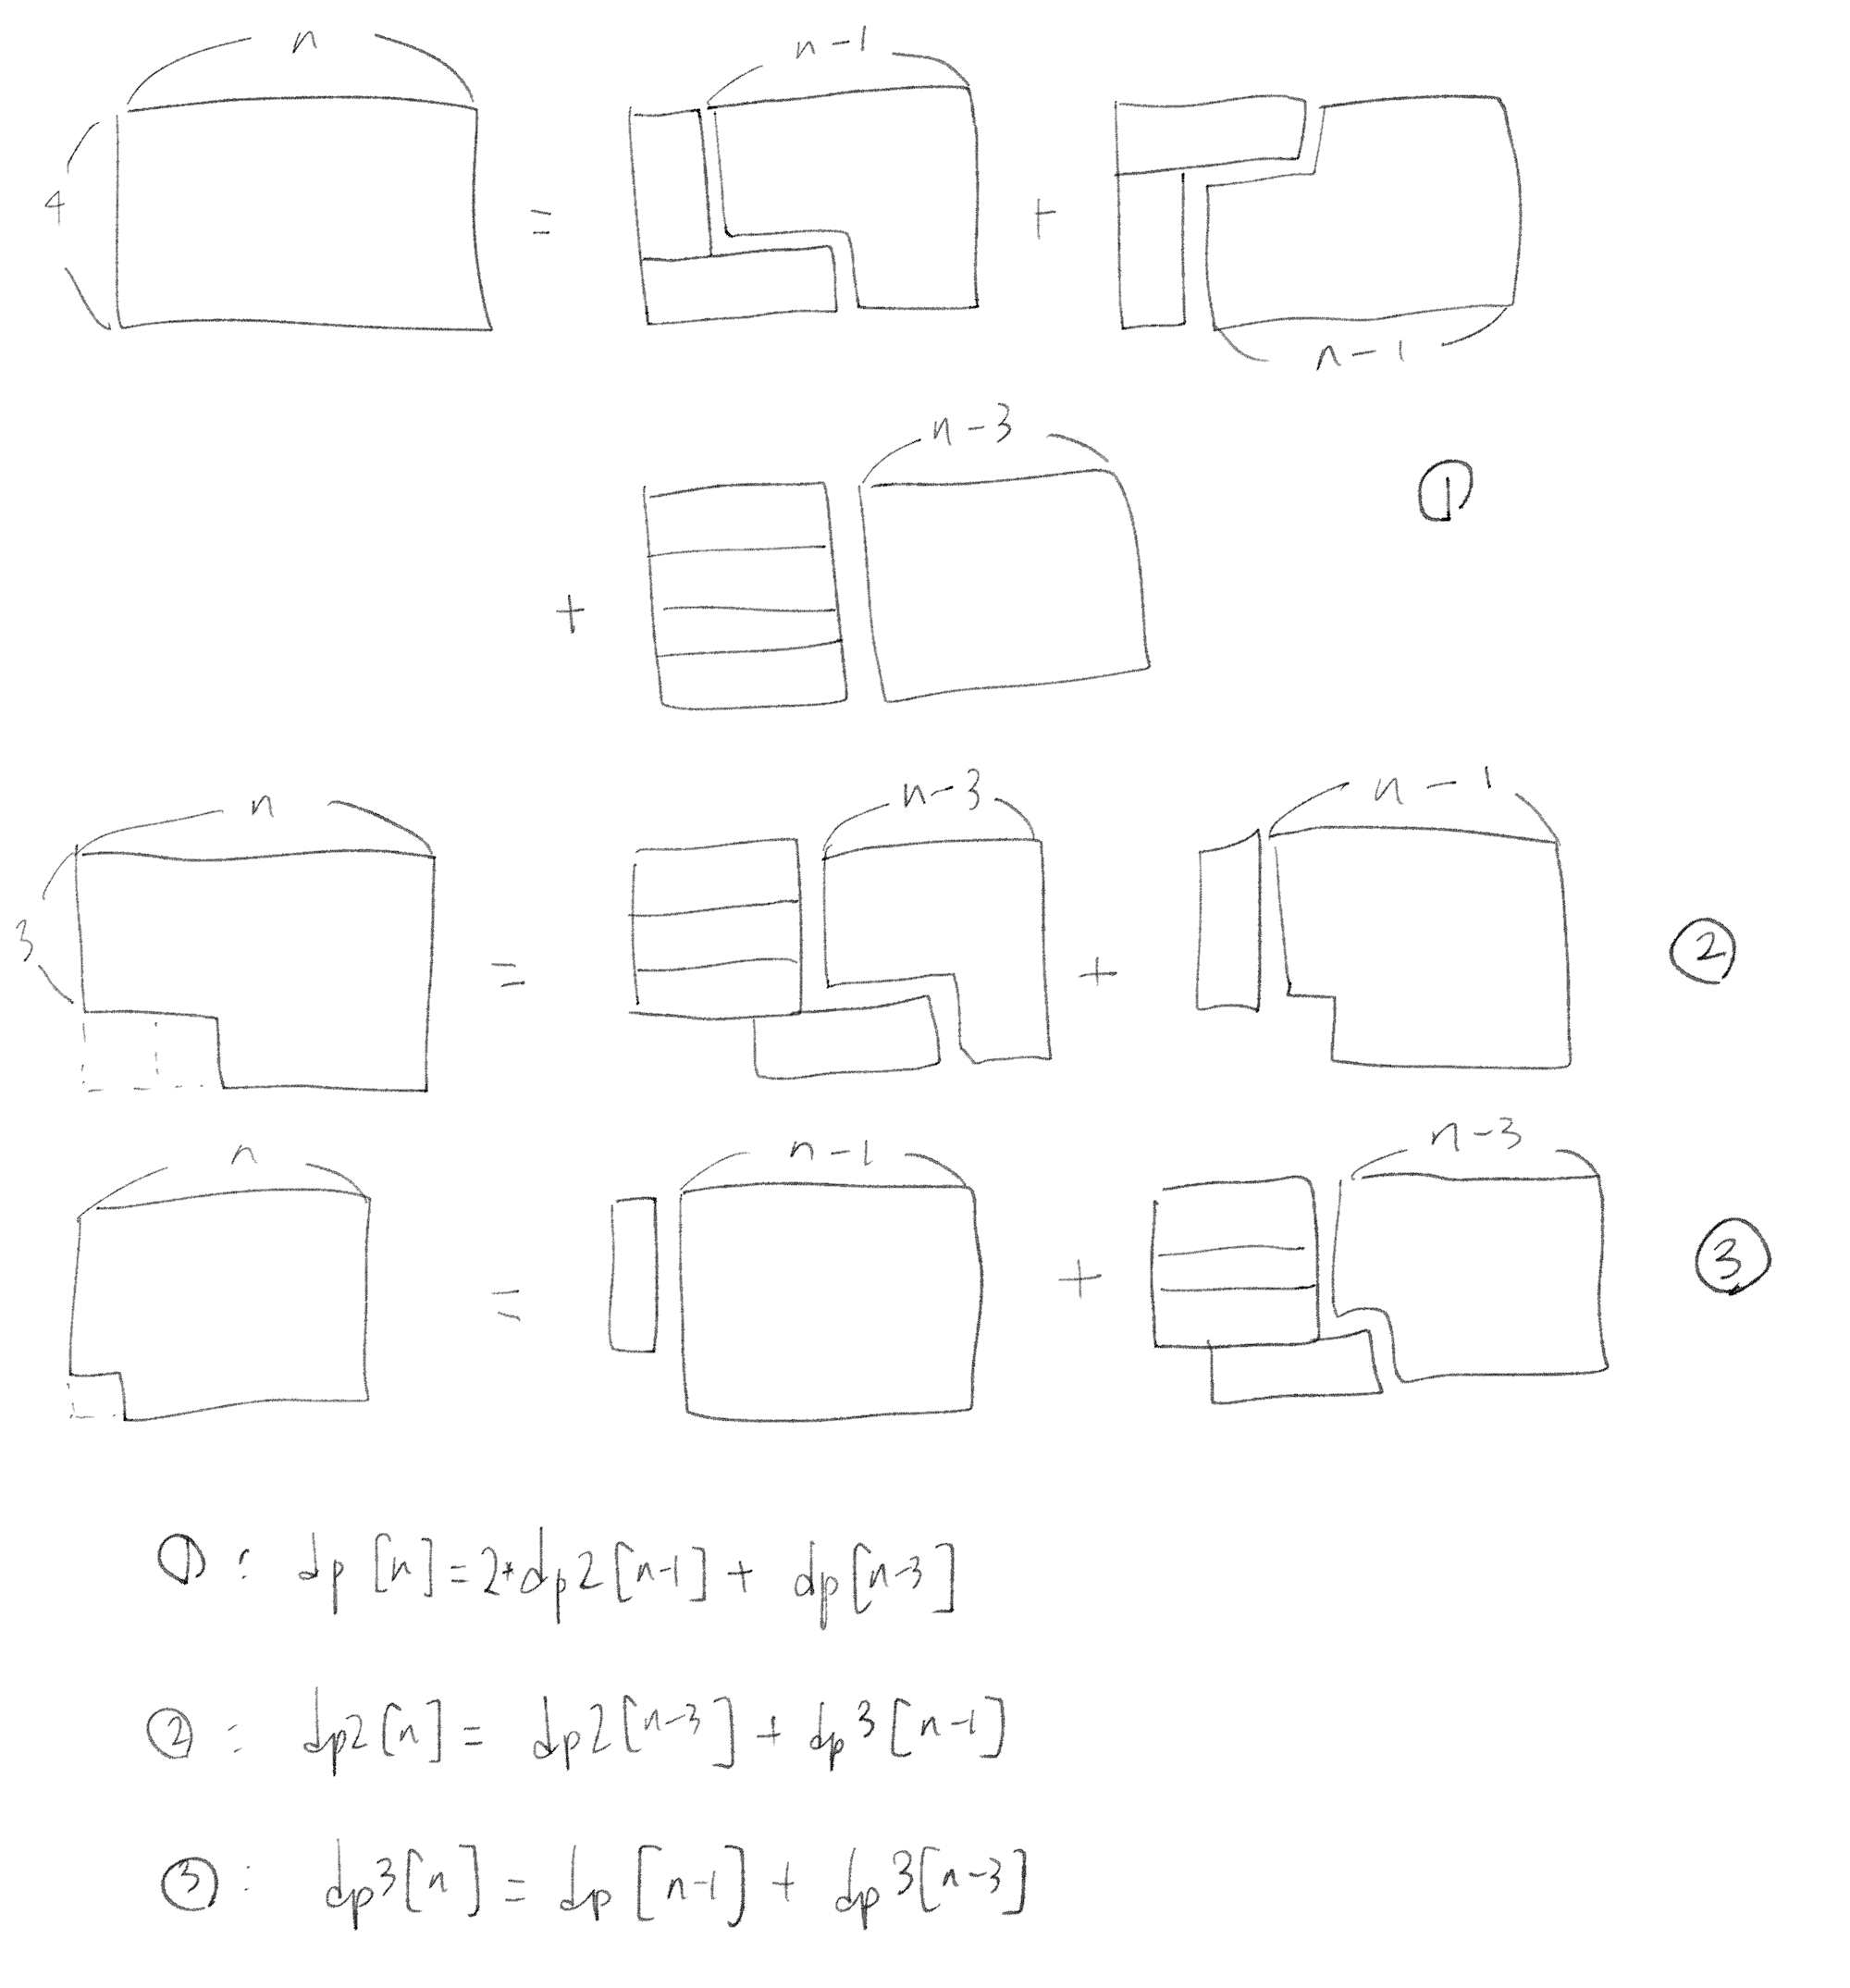 n
n-1
4
=
+
n-1
n-3
①
+
n
n-3
n-1
3
=
+
②
n
n-1
n-3
=
+
③
① : dp[n]=2*dp2[n-1]+ dp[n-3]
② : dp2[n]= dp2[n-3]+dp3[n-1]
③ : dp3[n]=dp[n-1]+dp3[n-3]